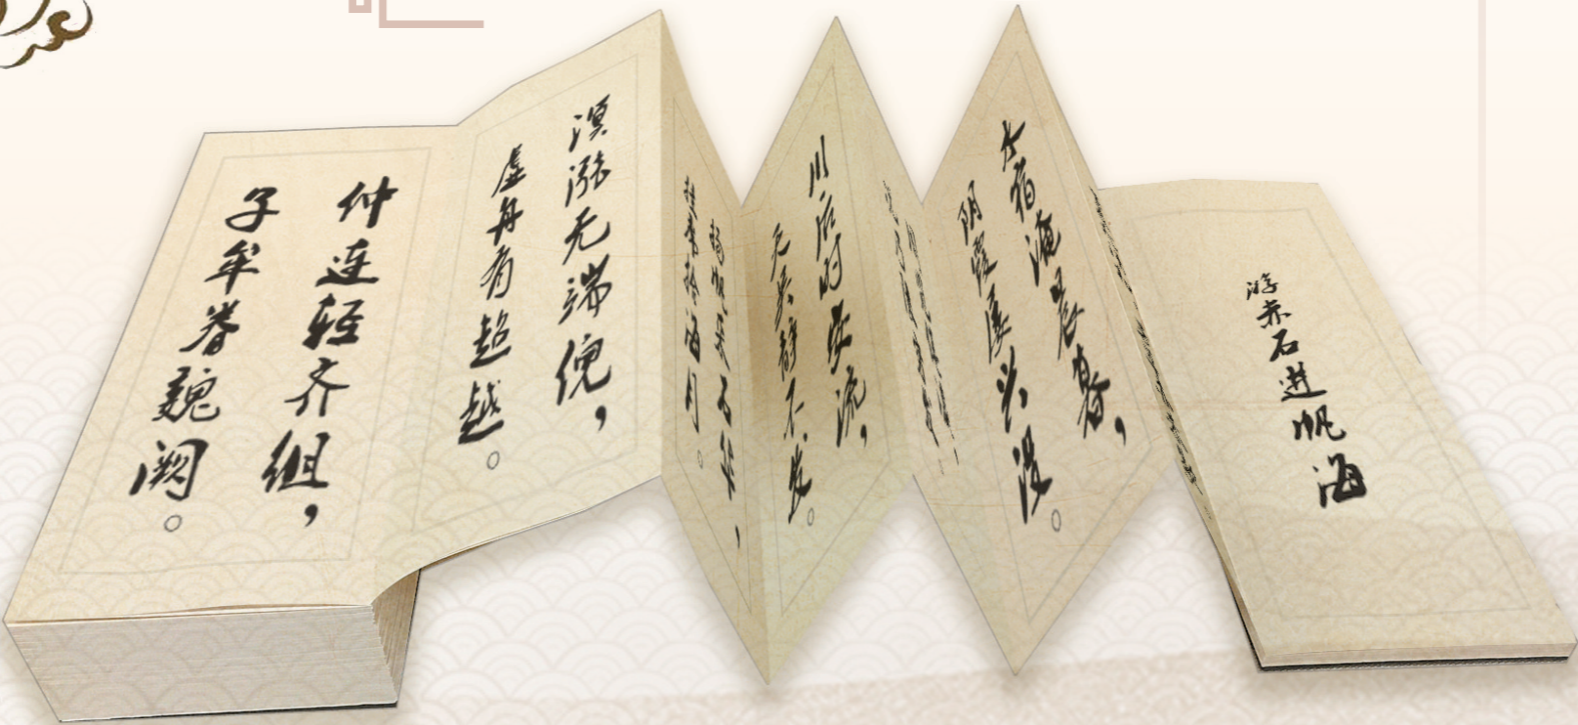 游赤石进帆海
水宿淹晨暮，
阴霞屡兴没。
川后时安流，
天吴静不发。
扬帆采石华，
挂席拾海月。
溟涨无端倪，
虚舟有超越。
仲连轻齐组，
子牟眷魏阙。